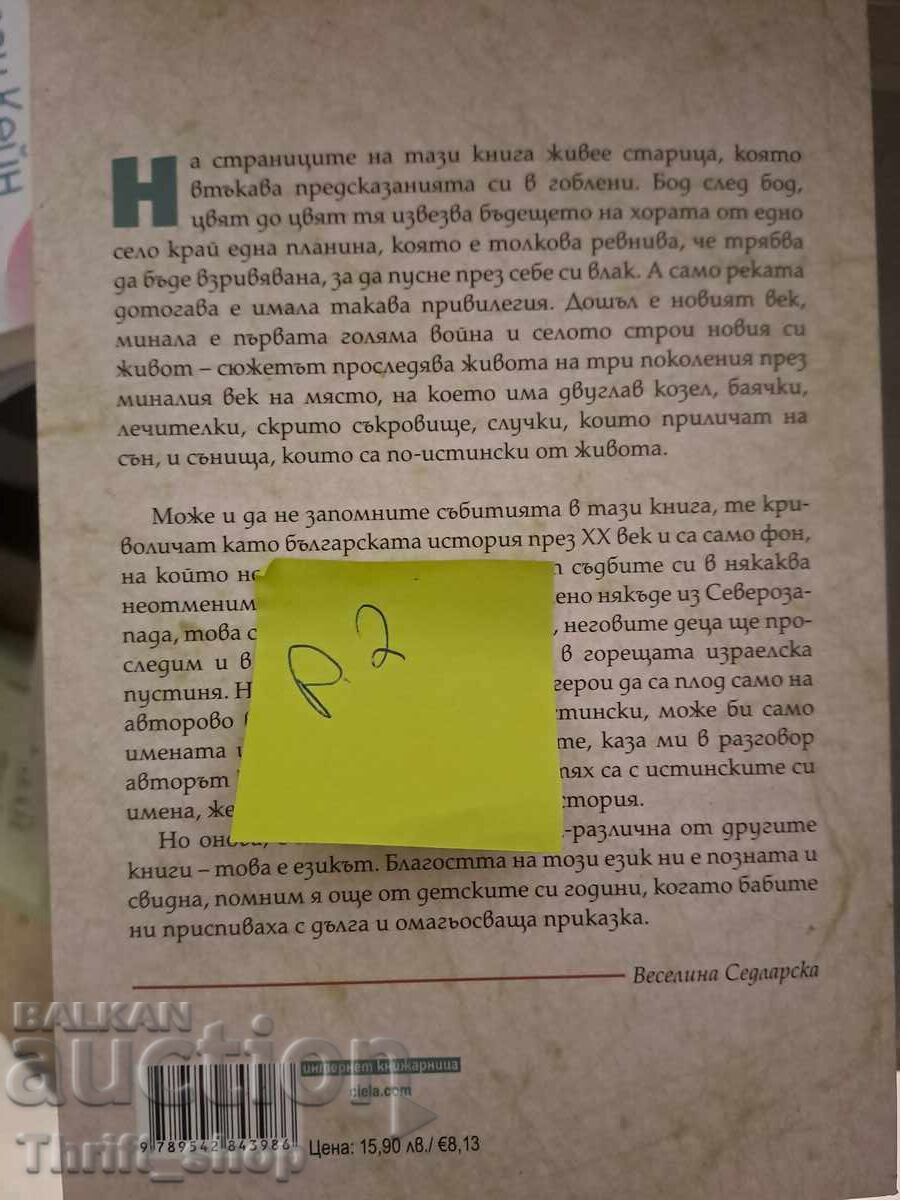 На страниците на тази книга живее старица, която
втъкава предсказанията си в гоблени. Бод след бод,
цвят до цвят тя извезва бъдещето на хората от едно
село край една планина, която е толкова ревнива, че трябва
да бъде взривявана, за да пусне през себе си влак. А само реката
дотогава е имала такава привилегия. Дошъл е новият век,
минала е първата голяма война и селото строи новия си
живот – сюжетът проследява живота на три поколения през
миналия век на място, на което има двуглав козел, баячки,
лечителки, скрито съкровище, случки, които приличат на
сън, и сънища, които са по-истински от живота.
Може и да не запомните събитията в тази книга, те кри-
воличат като българската история през XX век и са само фон,
на който съдбите си в някаква
неотменим някъде из Североза-
пада, това неговите деца ще про-
следим и в в горещата израелска
пустиня. герои да са плод само на
авторово може би само
имената каза ми в разговор
авторът са с истинските си
имена,
Но -различна от другите
книги – това е езикът. Благостта на този език ни е позната и
свидна, помним я още от детските си години, когато бабите
ни приспиваха с дълга и омагьосваща приказка.
Веселина Седларска
р. 2
BALKAN
auction
интернет книжарница
ciela.com
9 789542 843986
Цена: 15,90 лв./ €8,13
Thrift_shop